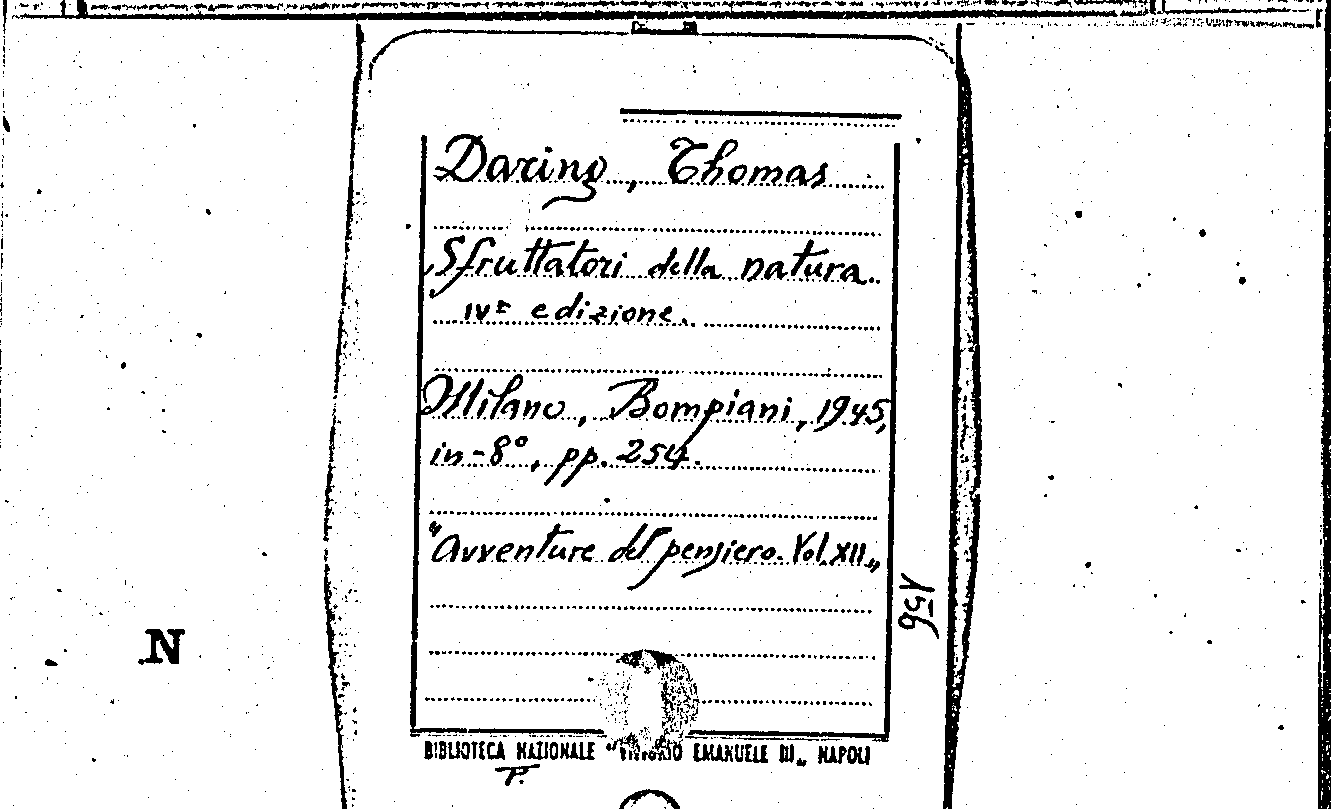 Daring, Thomas
Sfruttatori della natura.
IVª edizione.
Milano, Bompiani, 1945,
in-8°, pp. 254.
"Avventure del pensiero. Vol. XII„
156
N
BIBLIOTECA NAZIONALE "VITTORIO EMANUELE III„ NAPOLI
P.